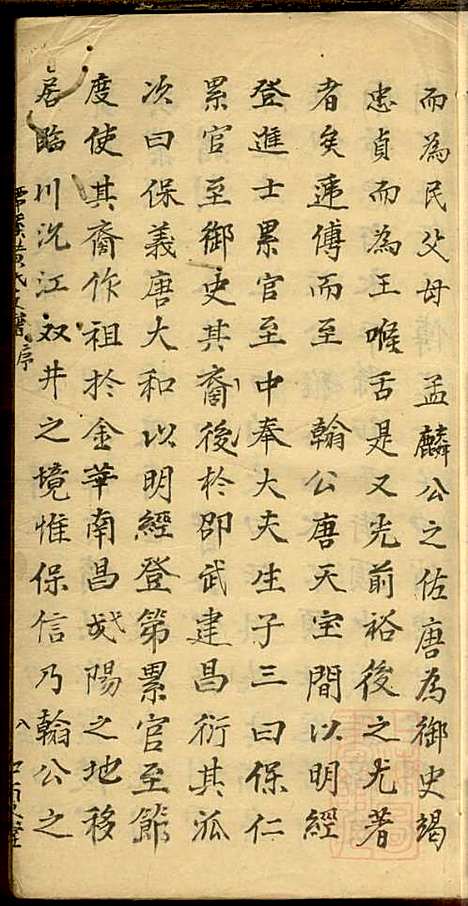 而為民父母 孟麟公之佐唐為御史竭
忠貞而為王喉舌是又光前裕後之尤著
者矣遞傳而至 翰公唐天宝間以明經
登進士累官至中奉大夫生子三曰保仁
累官至御史其裔後於邵武建昌衍其派
次曰保義唐大和以明經登第累官至節
度使其裔作祖於金華南昌弋陽之地移
居臨川沉江双井之境惟保信乃翰公之
序 八